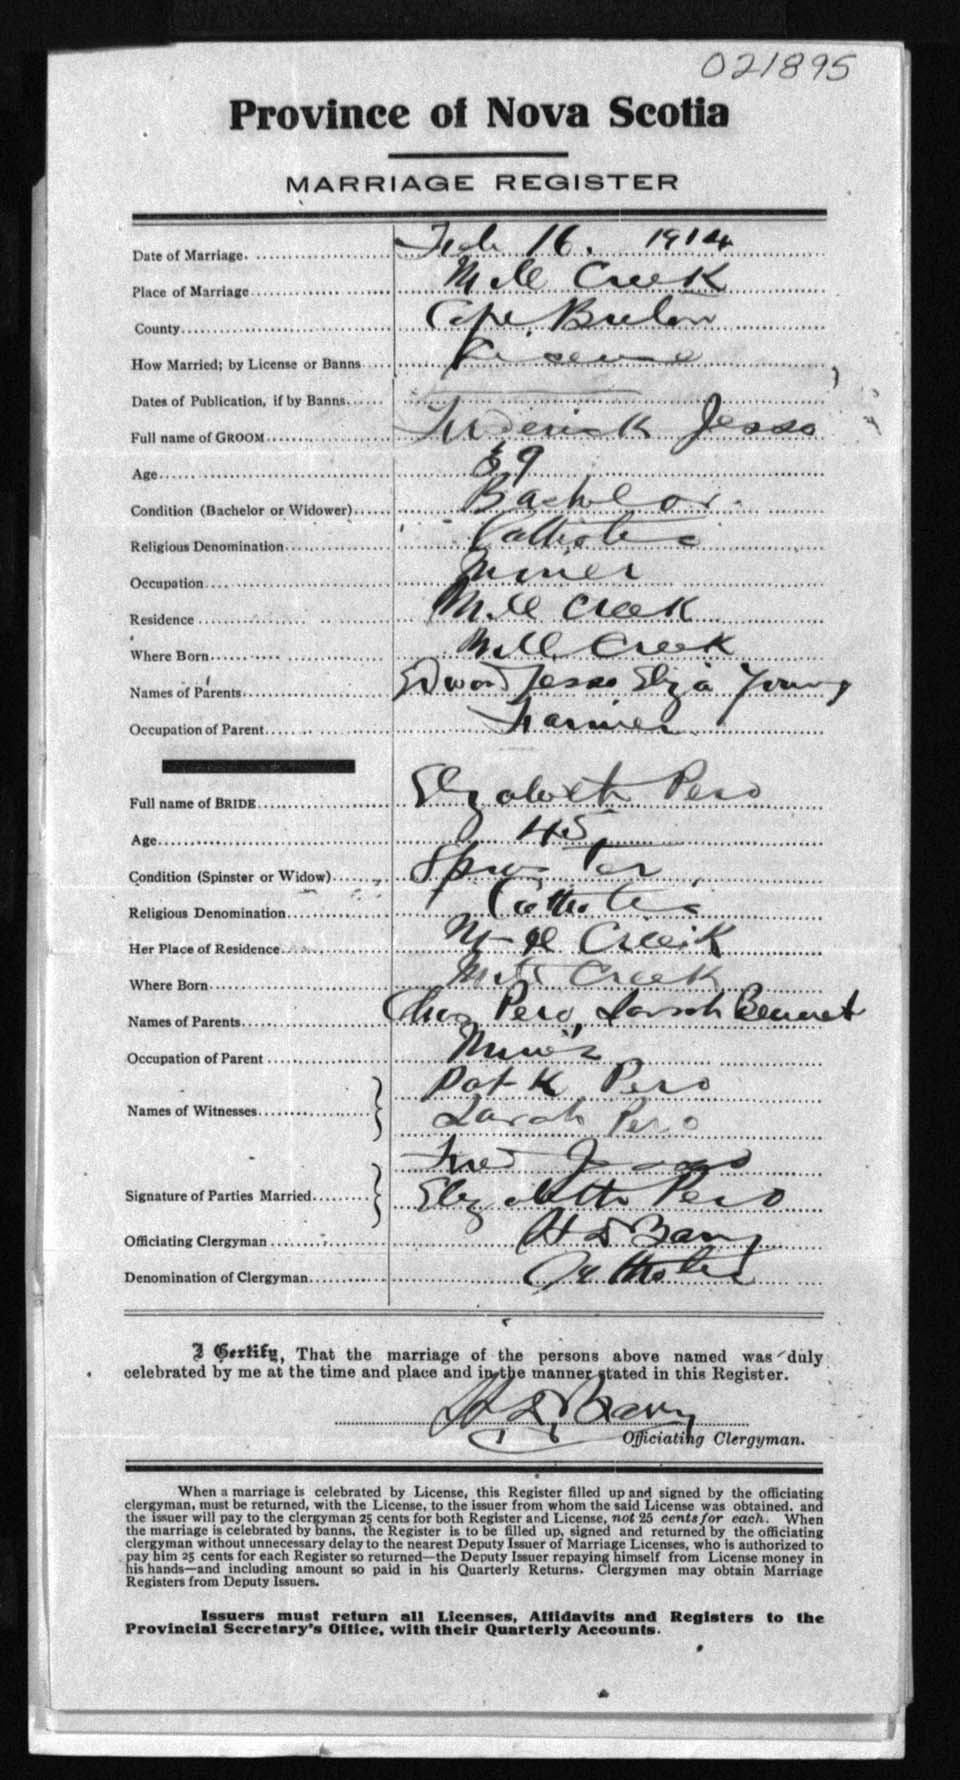 021895
Province of Nova Scotia
MARRIAGE REGISTER
Date of Marriage. Feb 16. 1914
Place of Marriage Mill Creek
County Cape Breton
How Married; by License or Banns License
Dates of Publication, if by Banns
Full name of GROOM Frederick Jesso
Age 39
Condition (Bachelor or Widower) Bachelor
Religious Denomination Catholic
Occupation Miner
Residence Mill Creek
Where Born Mill Creek
Names of Parents Edward Jesso Eliza Young
Occupation of Parent Farmer
Full name of BRIDE Elizabeth Pero
Age 45
Condition (Spinster or Widow) Spinster
Religious Denomination Catholic
Her Place of Residence Mill Creek
Where Born Mill Creek
Names of Parents Chas Pero, Sarah Bennet
Occupation of Parent Miner
Names of Witnesses Pat K Pero
Sarah Pero
Signature of Parties Married Fred Jesso
Elizabeth Pero
Officiating Clergyman H D Barry
Denomination of Clergyman Catholic
I Certify, That the marriage of the persons above named was duly
celebrated by me at the time and place and in the manner stated in this Register.
H D Barry
Officiating Clergyman.
When a marriage is celebrated by License, this Register filled up and signed by the officiating
clergyman, must be returned, with the License, to the issuer from whom the said License was obtained. and
the issuer will pay to the clergyman 25 cents for both Register and License, not 25 cents for each. When
the marriage is celebrated by banns, the Register is to be filled up, signed and returned by the officiating
clergyman without unnecessary delay to the nearest Deputy Issuer of Marriage Licenses, who is authorized to
pay him 25 cents for each Register so returned—the Deputy Issuer repaying himself from License money in
his hands—and including amount so paid in his Quarterly Returns. Clergymen may obtain Marriage
Registers from Deputy Issuers.
Issuers must return all Licenses, Affidavits and Registers to the
Provincial Secretary's Office, with their Quarterly Accounts.